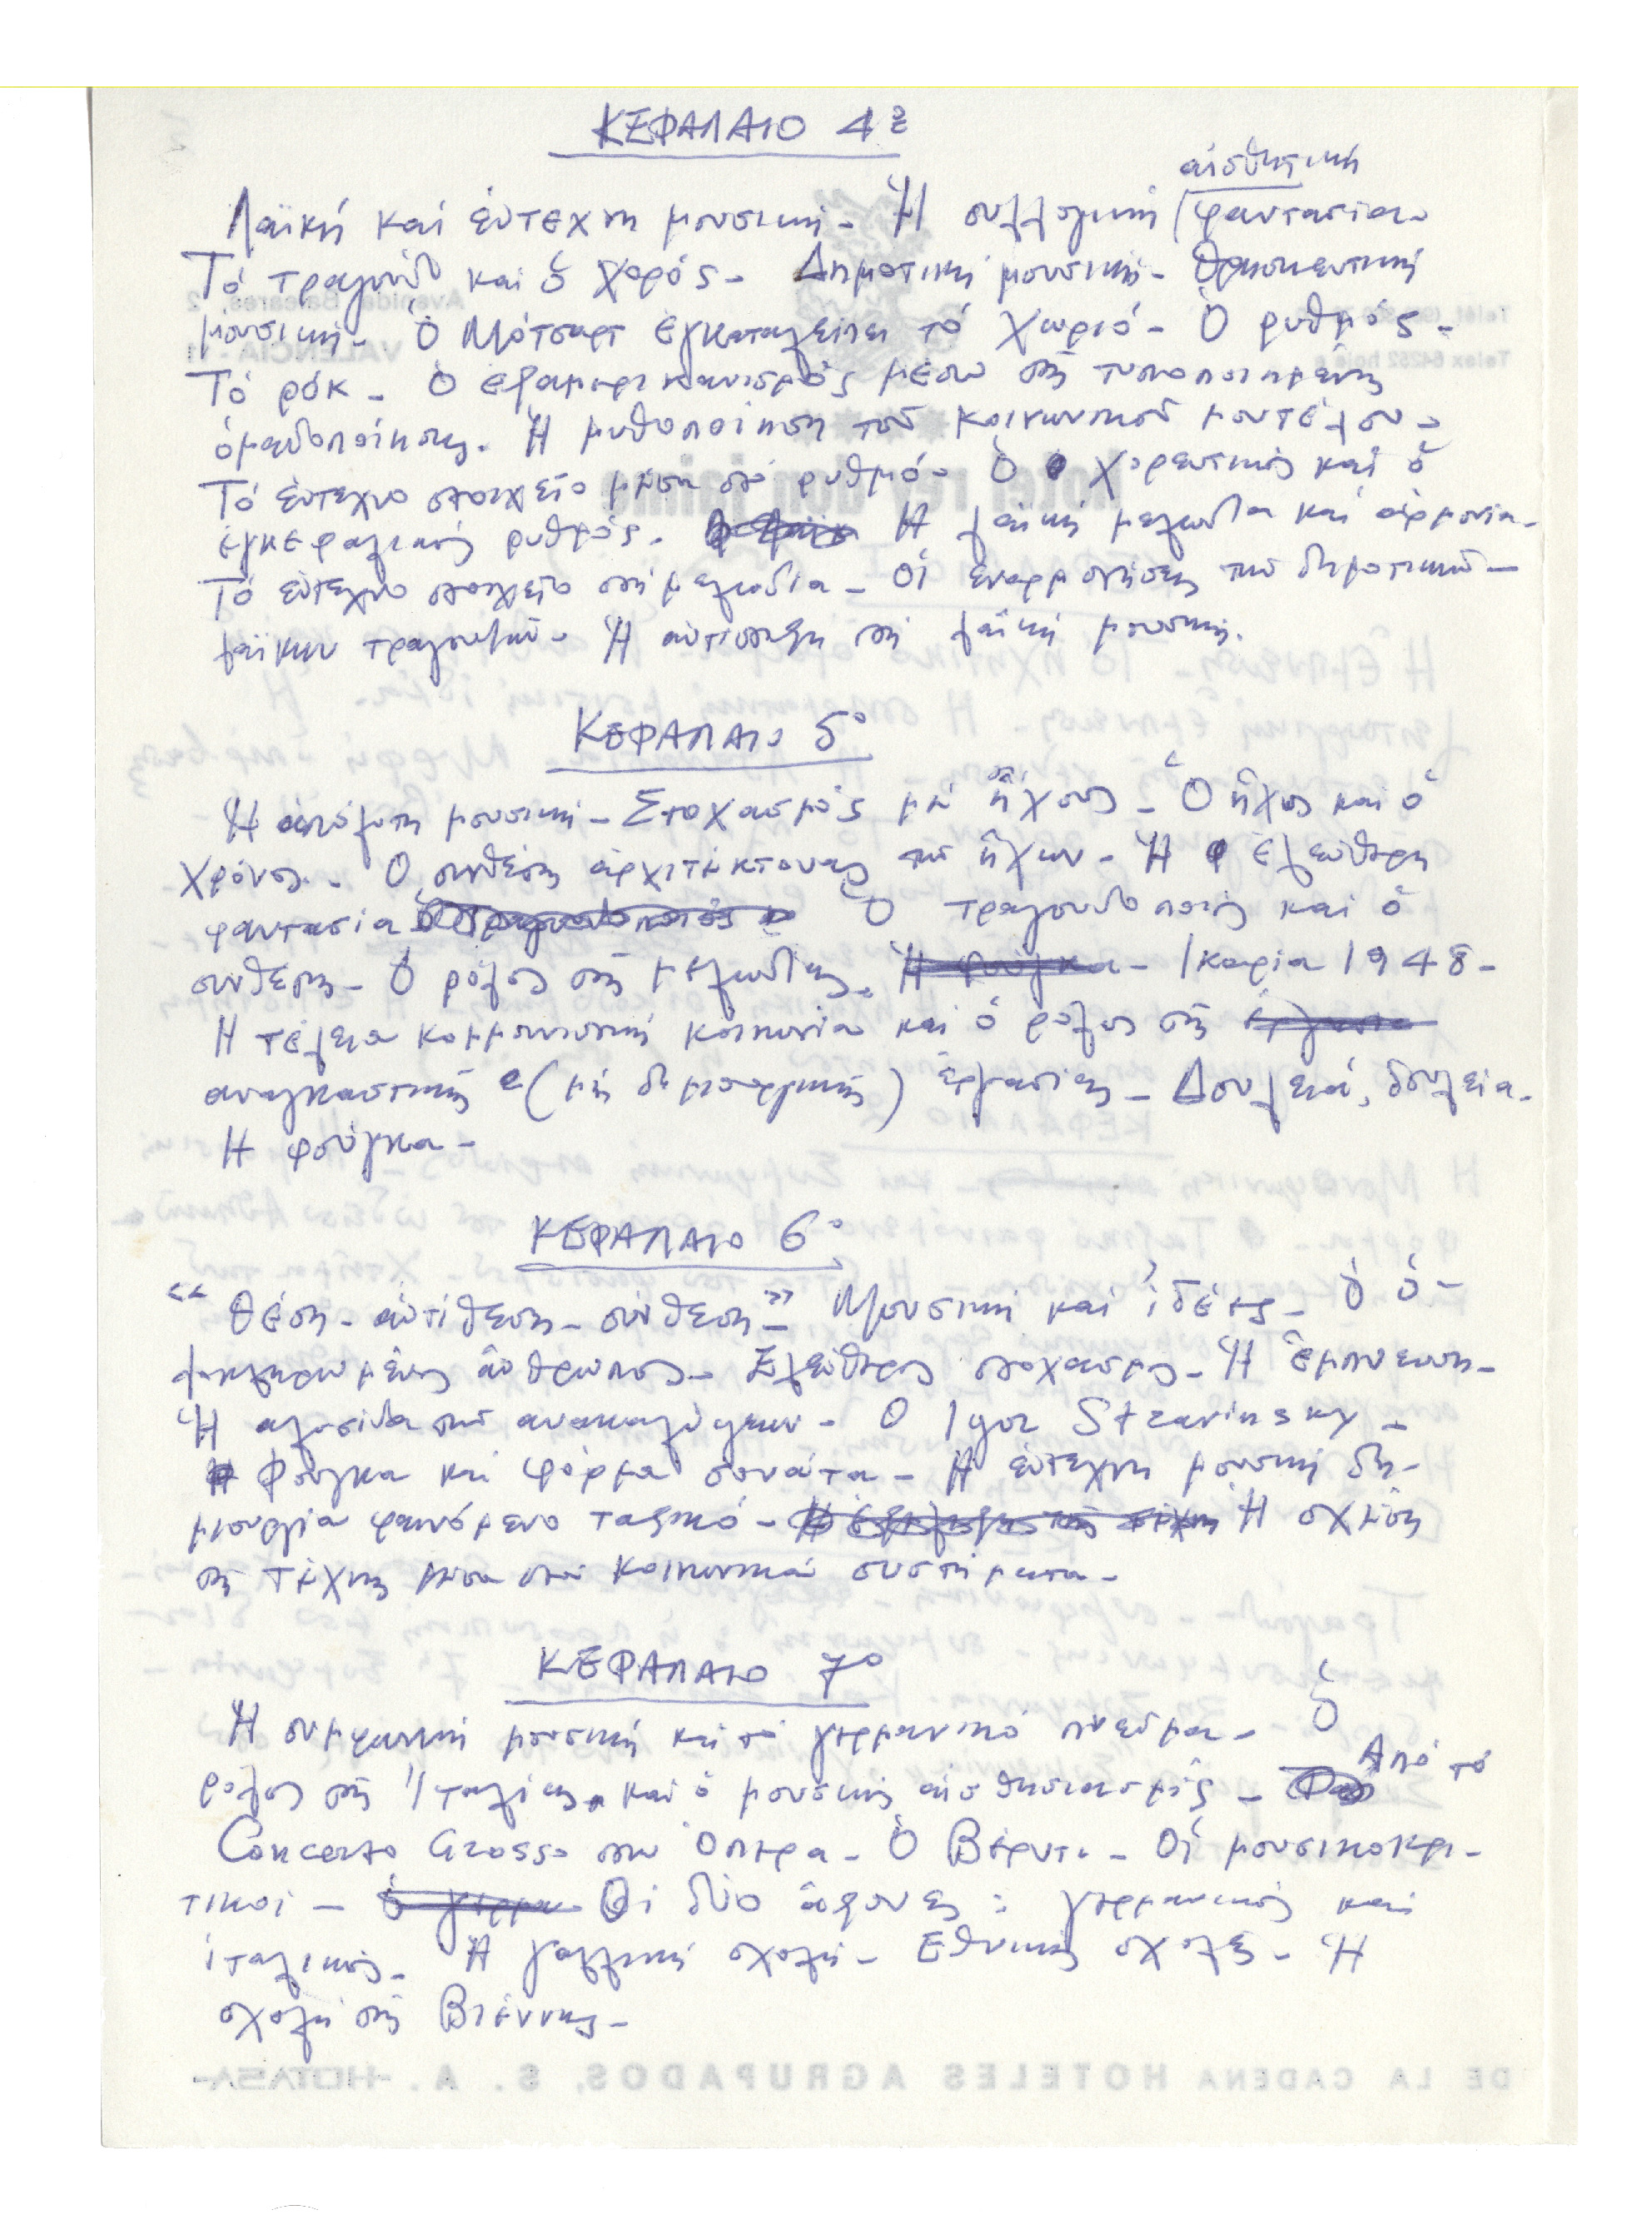 ΚΕΦΑΛΑΙΟ 4º
αἰσθητική
Λαϊκή καί ἔντεχνη μουσική - Ἡ συλλογική φαντασία -
Τό τραγούδι καί ὁ χορός - Δημοτική μουσική - Θρησκευτική
μουσική - Ὁ Μότσαρτ ἐγκαταλείπει τό χωριό - Ὁ ρυθμός -
Τό ρόκ - Ὁ ἐξαμερικανισμός μέσω τῆς τυποποιημένης
ὁμαδοποίησης. Ἡ μυθοποίηση τοῦ κοινωνικοῦ μοντέλου -
Τό ἔντεχνο στοιχεῖο μέσα στό ρυθμό - Ὁ χορευτικός καί ὁ
ἐγκεφαλικός ρυθμός. Ἡ λαϊκή μελωδία καί ἁρμονία -
Τό ἔντεχνο στοιχεῖο στή μελωδία - Οἱ ἐναρμονίσεις τῶν δημοτικῶν -
λαϊκών τραγουδιῶν - Ἡ ἀντίσταξη στή λαϊκή μουσική.
ΚΕΦΑΛΑΙΟ 5º
Ἡ ἀπόλυτη μουσική - Στοχασμός μέ ἤχους - Ὁ ἦχος καί ὁ
χρόνος - Ὁ συνθέτης ἀρχιτέκτονας τῶν ἤχων - Ἡ ἐλεύθερη
φαντασία Ὁ τραγουδοποιός καί ὁ
συνθέτης - Ὁ ρόλος τῆς μελωδίας. Ἡ φούγκα - Ικαρία 1948 -
Η τέλεια κομμουνιστική κοινωνία καί ὁ ρόλος τῆς
αναγκαστικής (μή δημιουργικής) ἐργασίας - Δουλειά, δουλεία -
Η φούγκα -
ΚΕΦΑΛΑΙΟ 6º
"Θέση - ἀντίθεση - σύνθεση" - Μουσική καί ἰδέες - Ὁ ὁ-
λοκληρωμένος ἄνθρωπος - Ἐλεύθερος στοχασμός - Ἡ ἔμπνευση -
Ἡ αλυσίδα τῶν ανακαλύψεων - Ο Igor Stravinsky -
Φούγκα καί φόρμα σονάτα - Ἡ ἔντεχνη μουσική δη-
μιουργία φαινόμενο ταξικό - Ἡ σχέση
τῆς Τέχνης μέσα στά κοινωνικά συστήματα -
ΚΕΦΑΛΑΙΟ 7º
Ἡ συμφωνική μουσική καί τό γερμανικό πνεῦμα - Ὁ
ρόλος τῆς Ἰταλίας καί ὁ μουσικός αἰσθησιασμός - Ἀπό τό
Concerto Grosso στήν Ὄπερα - Ὁ Βέρντι - Οἱ μουσικοκρι-
τικοί - Οἱ δύο ἄξονες : γερμανικός καί
ἰταλικός - Ἡ γαλλική σχολή - Εθνικές σχολές - Ἡ
σχολή τῆς Βιέννης -
DE LA CADENA HOTELES AGRUPADOS, S. A. -HOTASA-